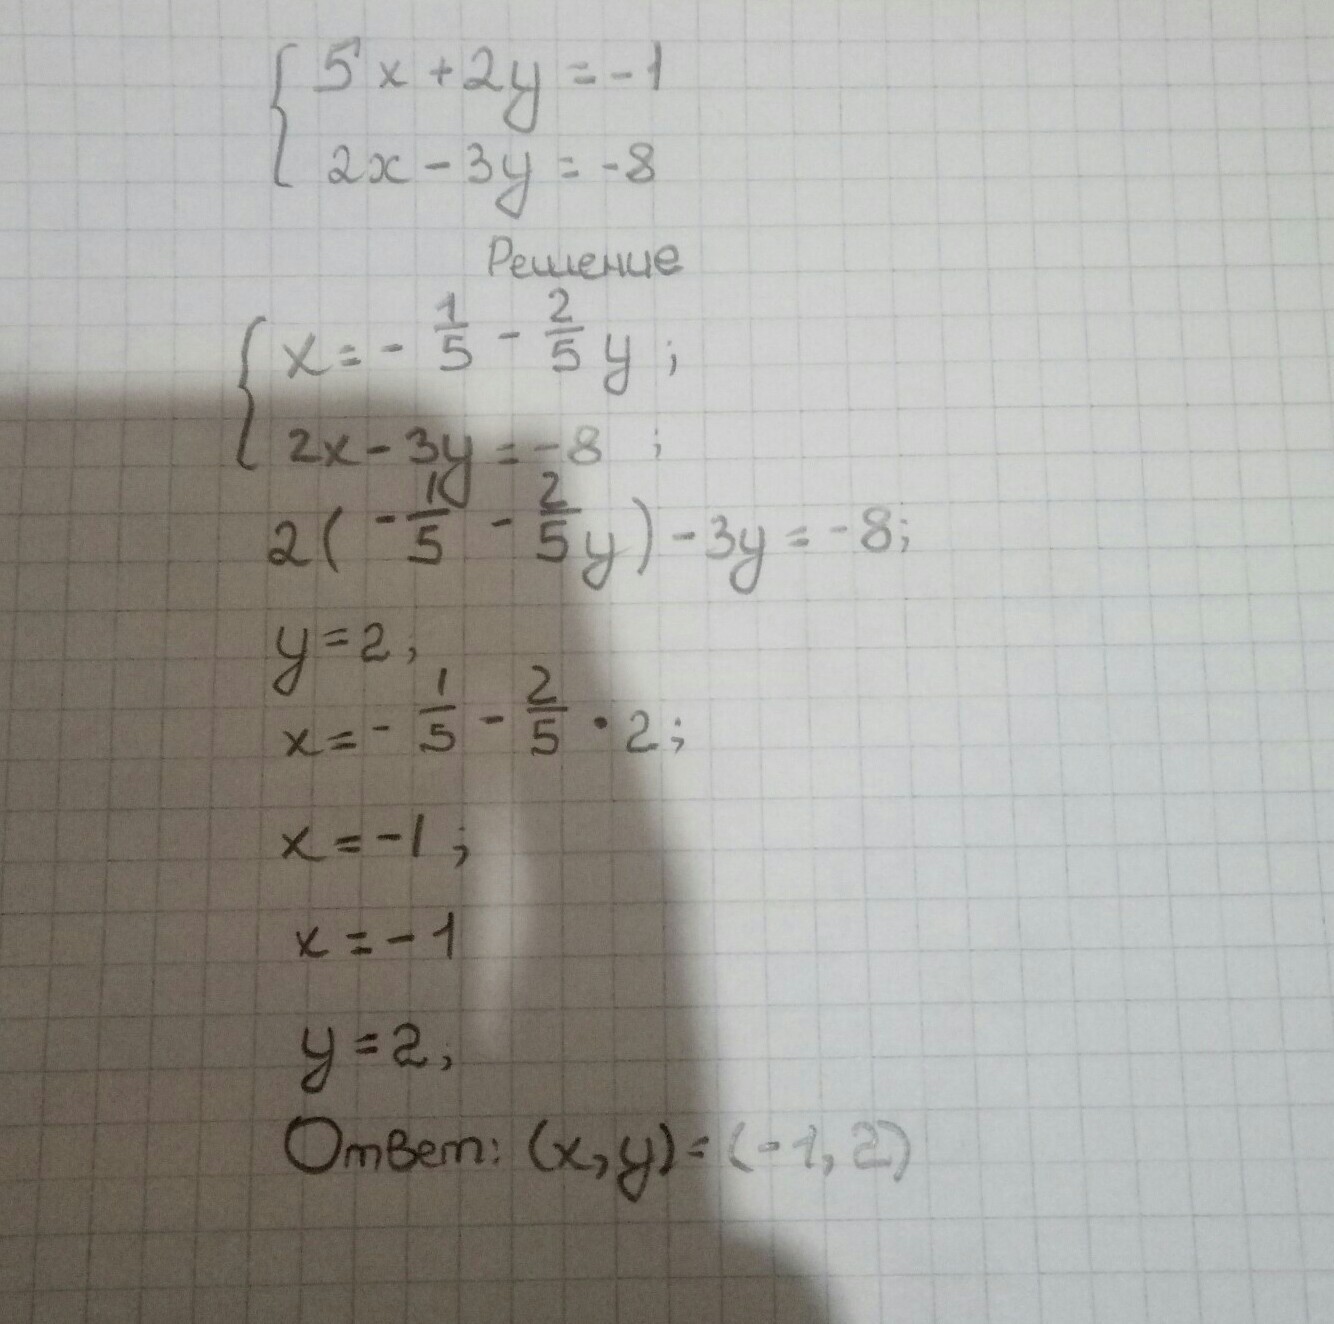 { 5x + 2y = -1
2x - 3y = -8
Решение
{ x = - 1/5 - 2/5 y ;
2x - 3y = -8 ;
2( - 1/5 - 2/5 y) - 3y = -8;
y = 2,
x = - 1/5 - 2/5 · 2;
x = -1;
x = -1
y = 2,
Ответ: (x,y) = (-1, 2)